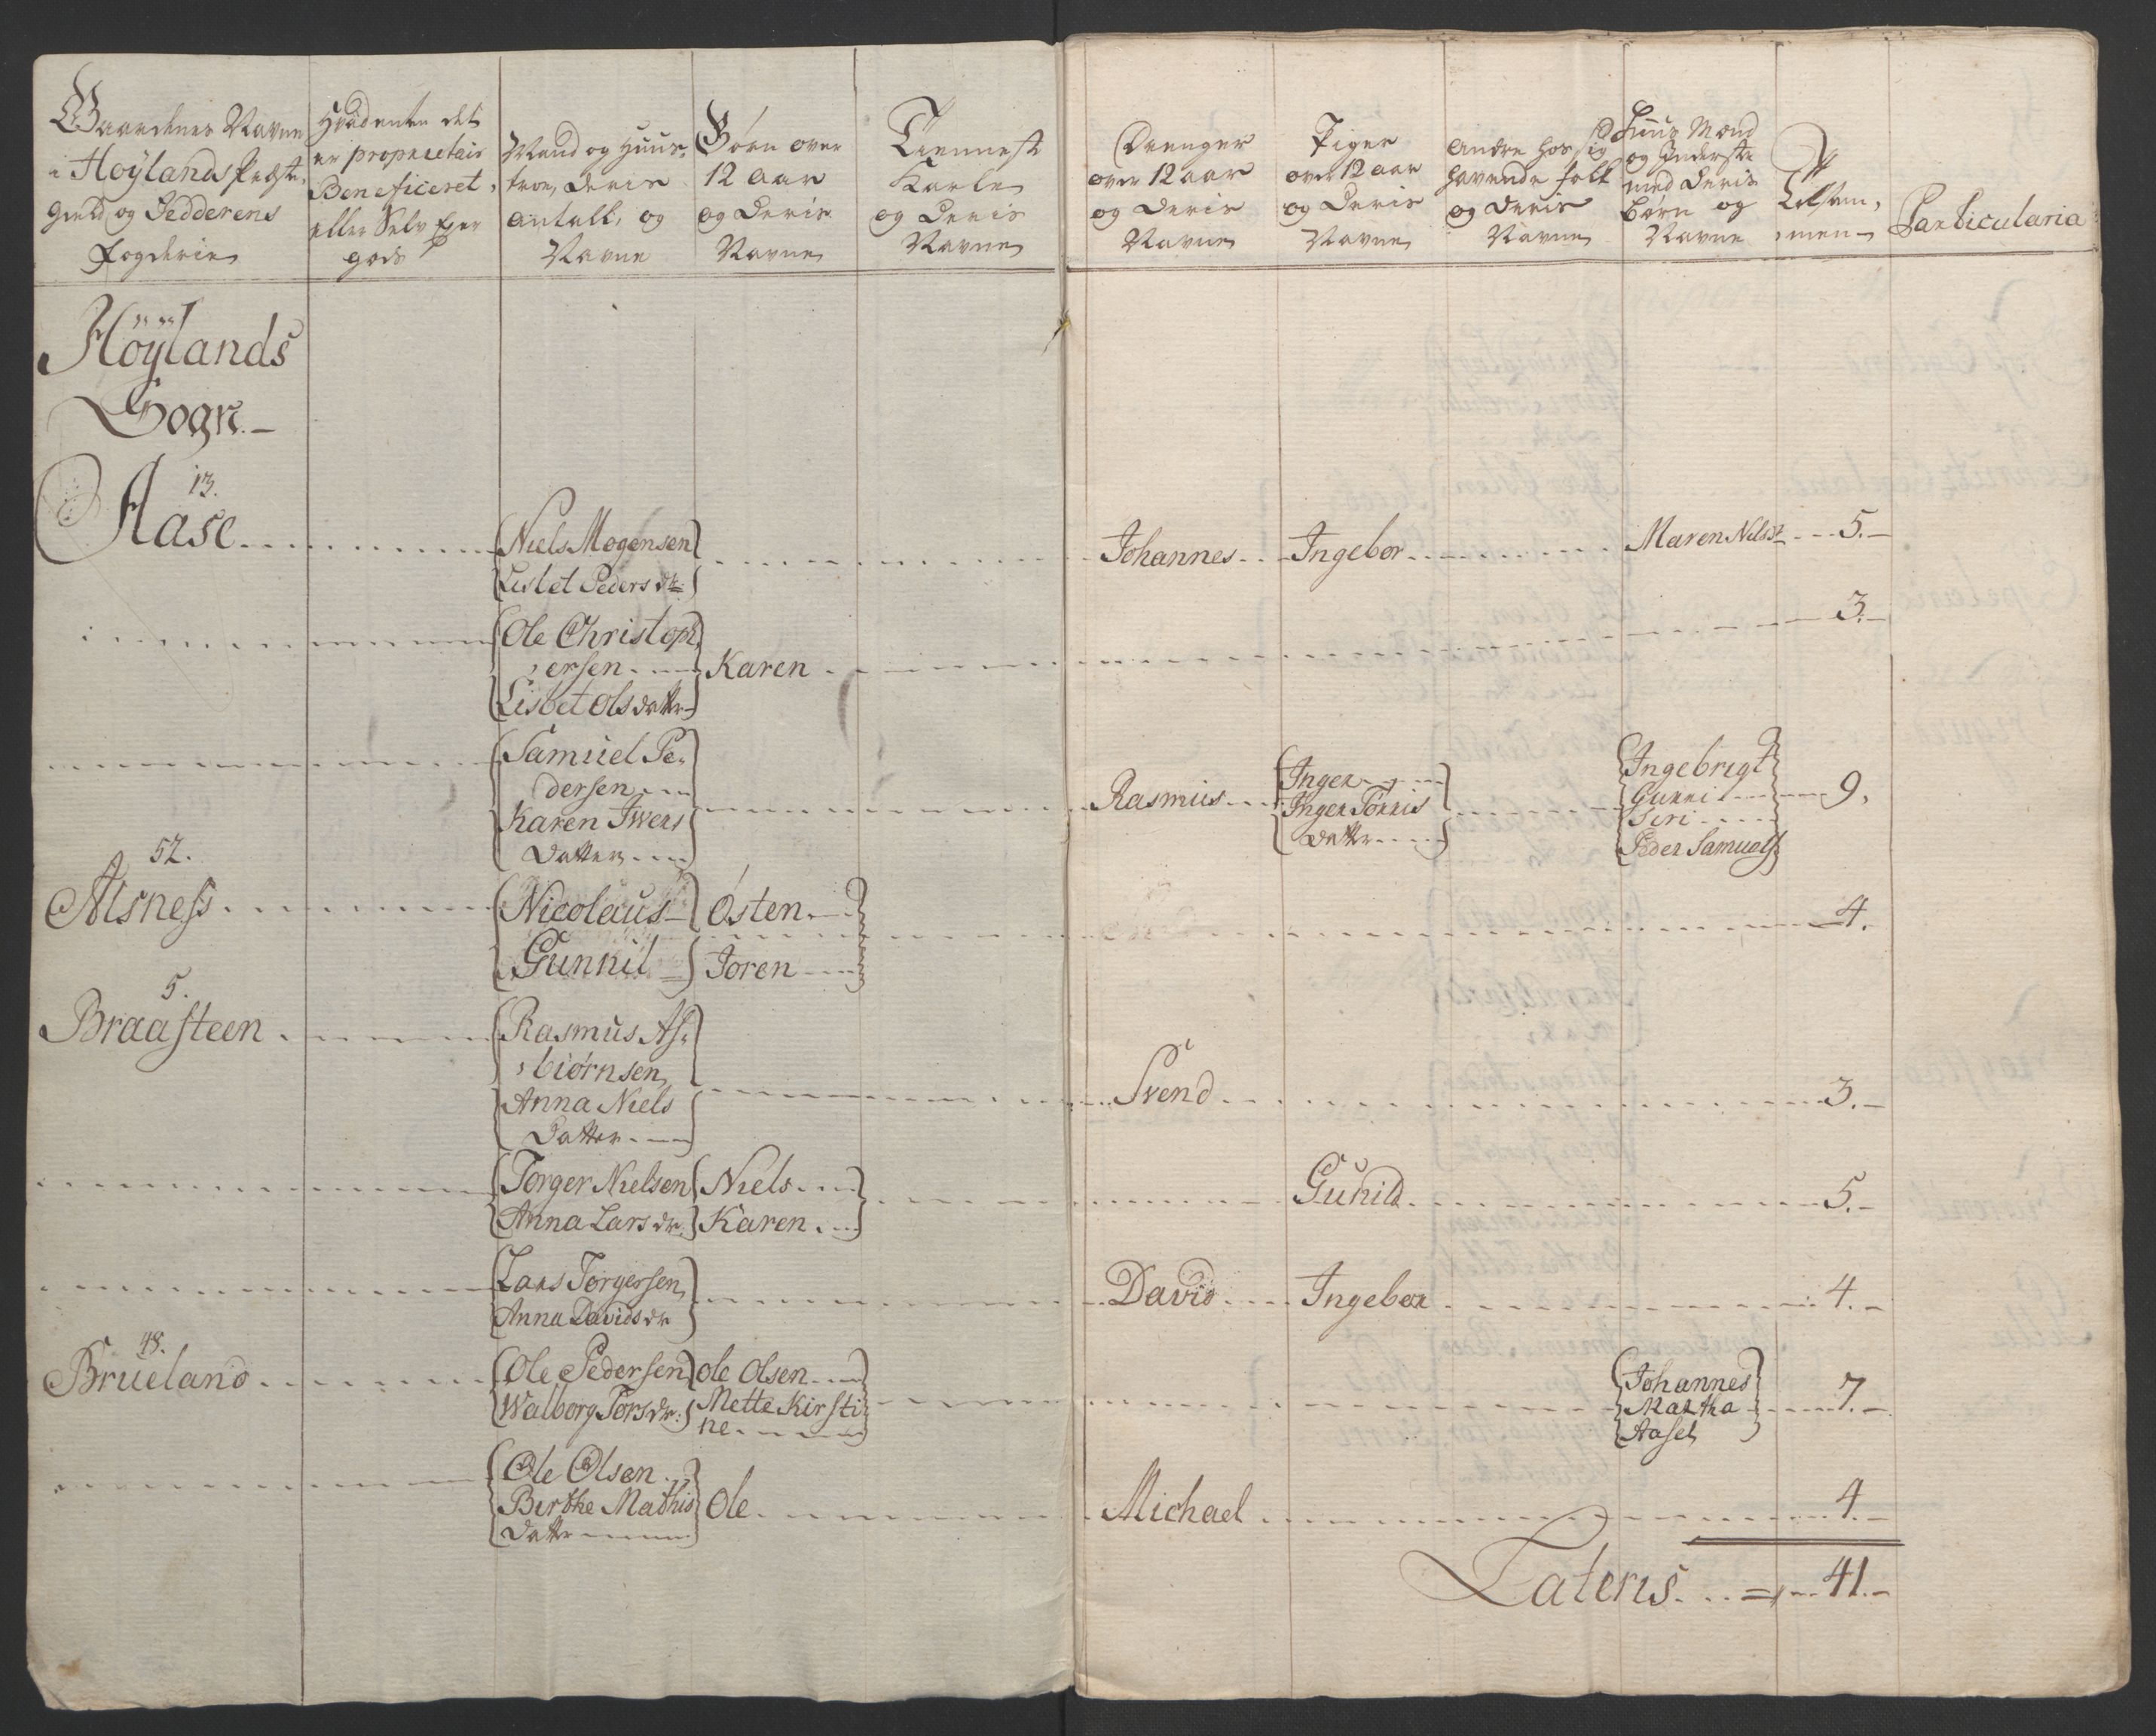 Gaardenes Navne
i Høylands Præste,
gield og Jedderens
Fogderie
Hvad enten det
er proprietair
Beneficeret,
eller Selv Eyer
gods
Mand og Huus,
troe, Deris
antall, og
Navne
Børn over
12 aar
og Deris
Navne
Tienneste
Karle
og Deris
Navne
Drenger
over 12 aar
og Deris
Navne
Piger
over 12 aar
og Deris
Navne
Andre hos sig
havende folk
og Deris
Navne
Huus Mænd
og Inderste
med Deris
Børn og
Navne
Tilsam,
men
Particularia
Höylands
Sogn.
13.
Aase
Niels Mogensen
Lisbet Peders dr.
Johannes
Ingebor
Maren Nelsdr
5.
Ole Christoph,
ersen
Lisbet Olsdattr
Karen
3.
Samuel Pe,
dersen
Karen Iwers
Datter
Rasmus
Inger
Inger Tørris
Dattr
Ingebrigt
Gurri
Siri
Peder Samuels
9,
52.
Alsness
Nicolaus
Gunnil
Østen
Joren
4.
5.
Braasteen
Rasmus As,
biørnsen
Anna Niels
Datter
Svend
3.
Torger Nielsen
Anna Lars dr.
Niels
Karen
Gunild
5.
Lars Torgersen
Anna Davids dr
David
Ingebor
4.
48.
Brueland
Ole Pedersen
Walborg Tors dr.
Ole Olsen
Mette Kirsti,
ne
Johannes
Martha
Aasel
7.
Ole Olsen
Berthe Mathis
Dattr
Ole
Michael
4.
Lateris
41.